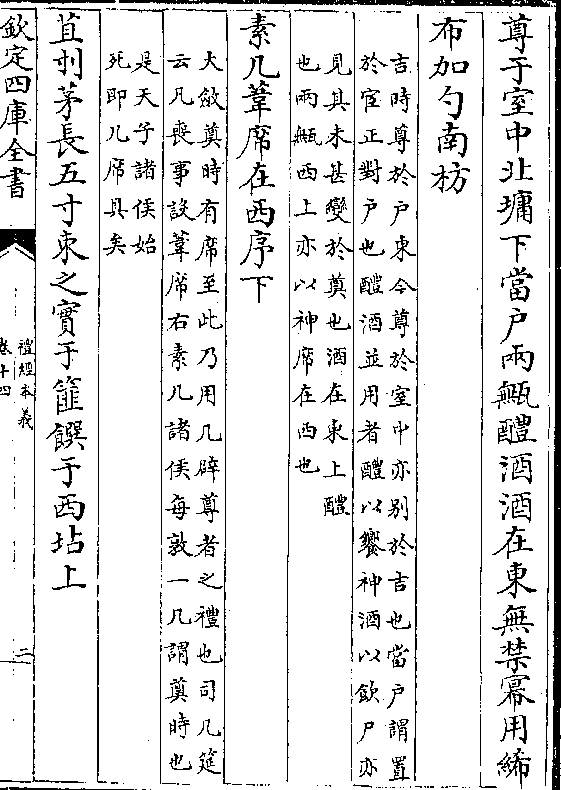 尊于室中北墉下當户兩甒醴酒酒在東無禁冪用綌
布加勺南枋
吉時尊於户東今尊於室中亦别於吉也當户謂置
於宦正對户也醴酒並用者醴以饗神酒以飲尸亦
見其未甚變於奠也酒在東上醴
也兩甒西上亦以神席在西也
素几葦席在西序下
大斂奠時有席至此乃用几辟尊者之禮也司几筵
云凡喪事設葦席右素几諸侯每敦一几謂奠時也
是天子諸侯始
死即几席具矣
苴刌茅長五寸束之實于篚饌于西坫上
欽定四庫全書
禮經本義
卷十四
二